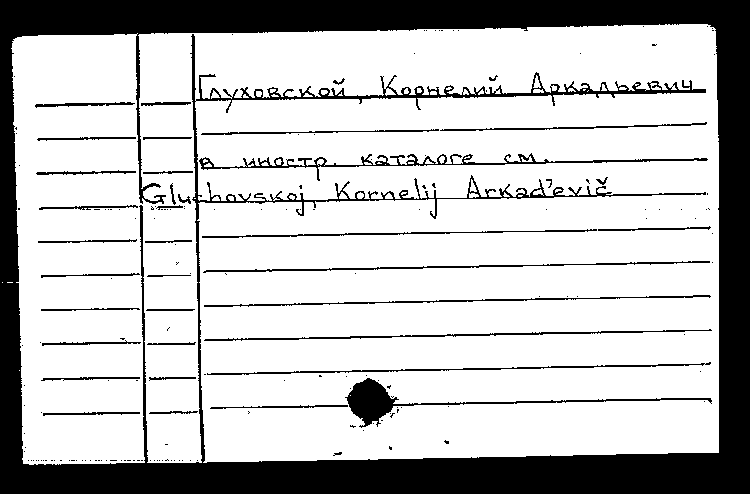 Глуховской, Корнелий Аркадьевич
в иностр. каталоге см.
Gluchovskoj, Kornelij Arkad'evič